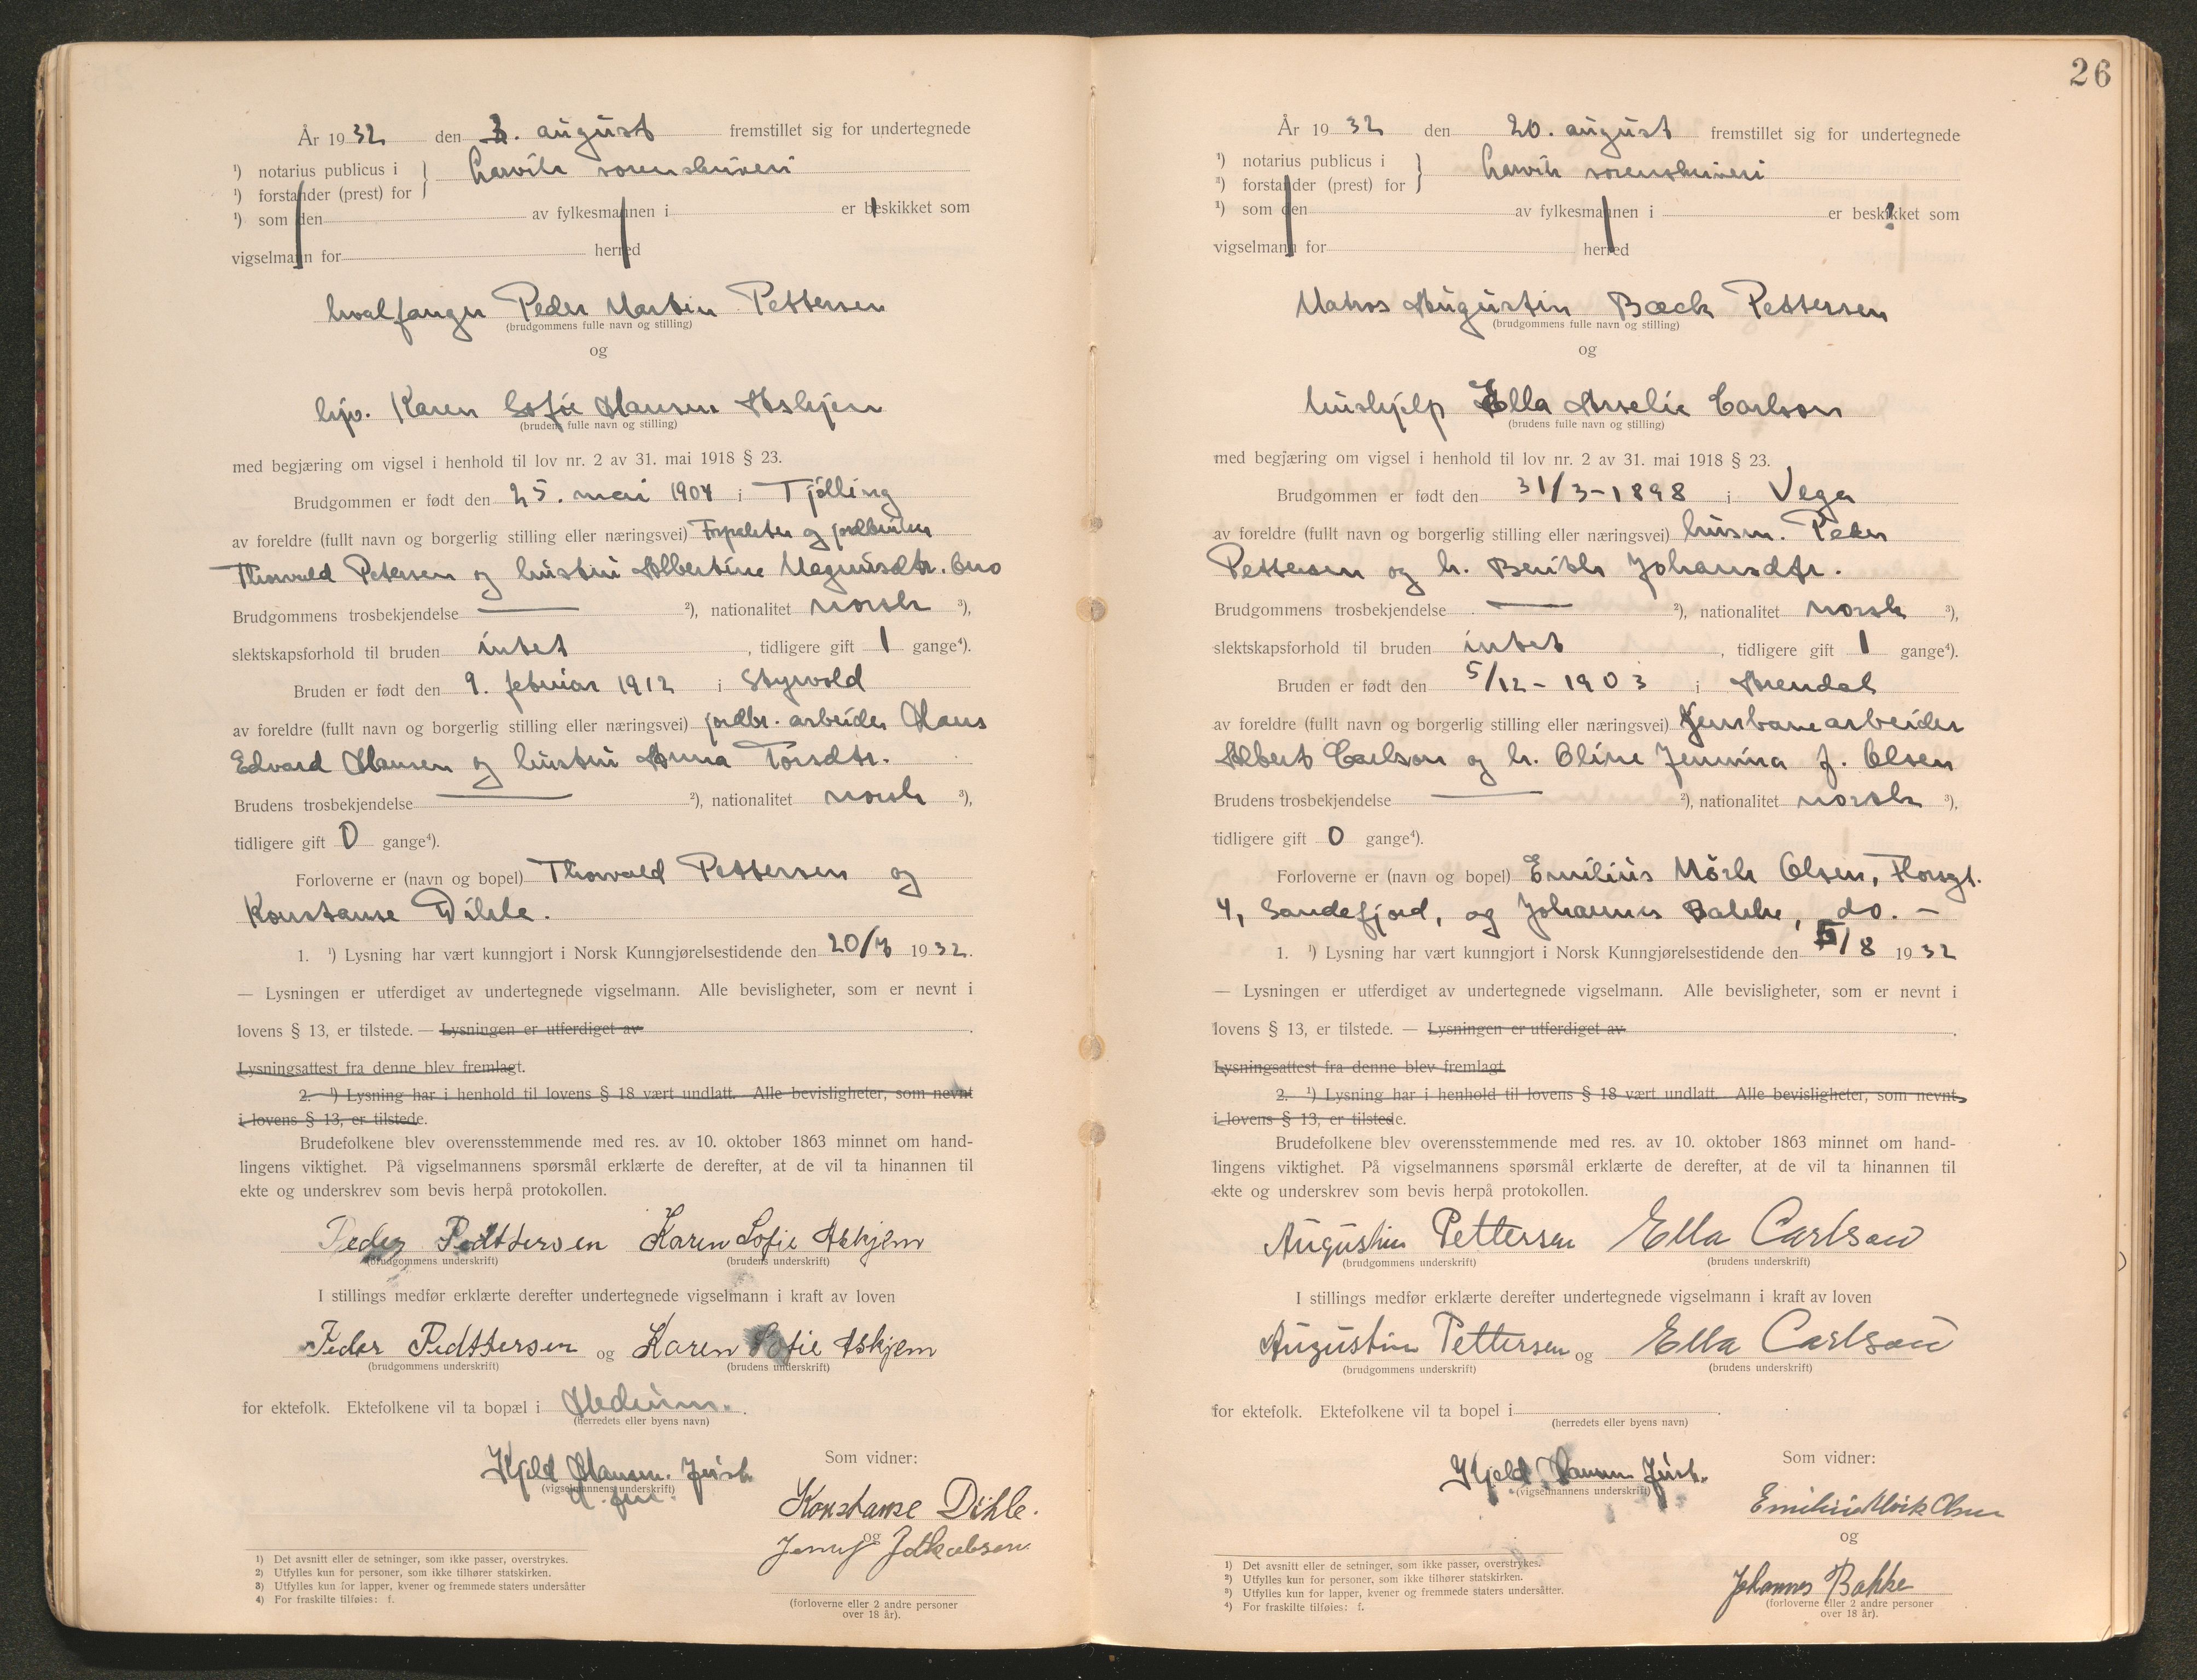 År 1932 den 3. august fremstillet sig for undertegnede
¹) notarius publicus i
¹) forstander (prest) for } Larvik sorenskriveri
¹) som den av fylkesmannen i er beskikket som
vigselmann for herred
hvalfanger Peder Martin Pettersen
(brudgommens fulle navn og stilling)
og
hjv. Karen Sofie Hansen Askjem
(brudens fulle navn og stilling)
med begjæring om vigsel i henhold til lov nr. 2 av 31. mai 1918 § 23.
Brudgommen er født den 25. mai 1904 i Tjølling
av foreldre (fullt navn og borgerlig stilling eller næringsvei) Forpakter og jordbruker
Thorvald Petersen og hustru Albertine Magnusdtr.
Brudgommens trosbekjendelse — ²), nationalitet norsk ³),
slektskapsforhold til bruden intet, tidligere gift 1 gange⁴).
Bruden er født den 9. februar 1912 i Styrvold
av foreldre (fullt navn og borgerlig stilling eller næringsvei) jordbr. arbeider Hans
Edvard Hansen og hustru Anna Torsdtr.
Brudens trosbekjendelse — ²), nationalitet norsk ³),
tidligere gift 0 gange⁴).
Forloverne er (navn og bopel) Thorvald Pettersen og
Konstanse Dihle.
1. ¹) Lysning har vært kunngjort i Norsk Kunngjørelsestidende den 20/7 1932.
— Lysningen er utferdiget av undertegnede vigselmann. Alle bevisligheter, som er nevnt i
lovens § 13, er tilstede. — Lysningen er utferdiget av .
Lysningsattest fra denne blev fremlagt.
2. ¹) Lysning har i henhold til lovens § 18 vært undlatt. Alle bevisligheter, som nevnt
i lovens § 13, er tilstede.
Brudefolkene blev overensstemmende med res. av 10. oktober 1863 minnet om hand-
lingens viktighet. På vigselmannens spørsmål erklærte de derefter, at de vil ta hinannen til
ekte og underskrev som bevis herpå protokollen.
Peder Pedttersen Karen Sofie Askjem
(brudgommens underskrift) (brudens underskrift)
I stillings medfør erklærte derefter undertegnede vigselmann i kraft av loven
Peder Pedttersen og Karen Sofie Askjem
(brudgommens underskrift) (brudens underskrift)
for ektefolk. Ektefolkene vil ta bopæl i Hedrum.
(herredets eller byens navn)
Kjeld Hansen. Jurist
(vigselmannens underskrift)
Som vidner:
Konstanse Dihle.
og
Jenny Jakobsen
(forloverne eller 2 andre personer
over 18 år).
1) Det avsnitt eller de setninger, som ikke passer, overstrykes.
2) Utfylles kun for personer, som ikke tilhører statskirken.
3) Utfylles kun for lapper, kvener og fremmede staters undersåtter
4) For fraskilte tilføies: f.
26
År 1932 den 20. august fremstillet sig for undertegnede
¹) notarius publicus i
¹) forstander (prest) for } Larvik sorenskriveri
¹) som den av fylkesmannen i er beskikket som
vigselmann for herred
Matros Augustin Bæck Pettersen
(brudgommens fulle navn og stilling)
og
hushjelp Ella Arselie Carlson
(brudens fulle navn og stilling)
med begjæring om vigsel i henhold til lov nr. 2 av 31. mai 1918 § 23.
Brudgommen er født den 31/3-1898 i Vega
av foreldre (fullt navn og borgerlig stilling eller næringsvei) husm. Peder
Pettersen og h. Johansdtr.
Brudgommens trosbekjendelse — ²), nationalitet norsk ³),
slektskapsforhold til bruden intet, tidligere gift 1 gange⁴).
Bruden er født den 5/12-1903 i Arendal
av foreldre (fullt navn og borgerlig stilling eller næringsvei) Jernbanearbeider
Albert Carlson og h. Oline Jemina f. Olsen
Brudens trosbekjendelse — ²), nationalitet norsk ³),
tidligere gift 0 gange⁴).
Forloverne er (navn og bopel) Emilius Mörk Olsen,
4, Sandefjord, og Johannes Bakke, do. —
1. ¹) Lysning har vært kunngjort i Norsk Kunngjørelsestidende den 5/8 1932
— Lysningen er utferdiget av undertegnede vigselmann. Alle bevisligheter, som er nevnt i
lovens § 13, er tilstede. — Lysningen er utferdiget av .
Lysningsattest fra denne blev fremlagt
2. ¹) Lysning har i henhold til lovens § 18 vært undlatt. Alle bevisligheter, som nevnt
i lovens § 13, er tilstede.
Brudefolkene blev overensstemmende med res. av 10. oktober 1863 minnet om hand-
lingens viktighet. På vigselmannens spørsmål erklærte de derefter, at de vil ta hinannen til
ekte og underskrev som bevis herpå protokollen.
Augustin Pettersen Ella Carlson
(brudgommens underskrift) (brudens underskrift)
I stillings medfør erklærte derefter undertegnede vigselmann i kraft av loven
Augustin Pettersen og Ella Carlson
(brudgommens underskrift) (brudens underskrift)
for ektefolk. Ektefolkene vil ta bopel i .
(herredets eller byens navn)
Kjeld Hansen Jurist.
(vigselmannens underskrift)
Som vidner:
Emilius Mörk Olsen
og
Johannes Bakke
(forloverne eller 2 andre personer
over 18 år).
1) Det avsnitt eller de setninger, som ikke passer, overstrykes.
2) Utfylles kun for personer, som ikke tilhører statskirken.
3) Utfylles kun for lapper, kvener og fremmede staters undersåtter.
4) For fraskilte tilføies: f.